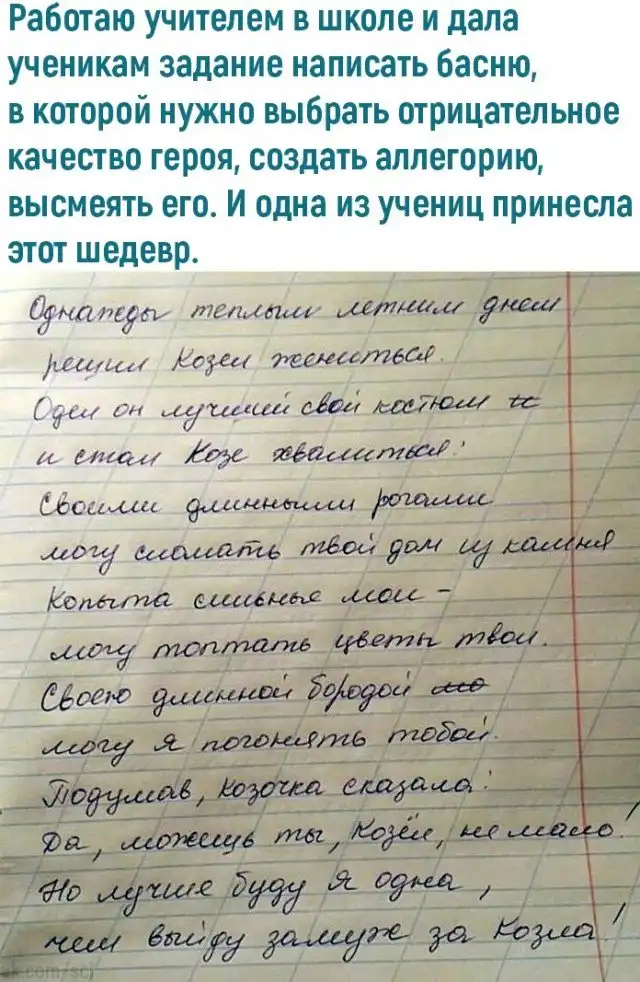 Работаю учителем в школе и дала
ученикам задание написать басню,
в которой нужно выбрать отрицательное
качество героя, создать аллегорию,
высмеять его. И одна из учениц принесла
этот шедевр.
Однажды теплым летним днем
решил Козел жениться.
Одел он лучший свой костюм
и стал Козе хвалиться:
Своими длинными рогами
могу сломать твой дом из камня
Копыта сильные мои –
могу топтать цветы твои.
Своею длинной бородой
могу я погонять тобой.
Подумав, Козочка сказала:
Да, можешь ты, Козёл, не мало!
Но лучше буду я одна,
чем выйду замуж за Козла!